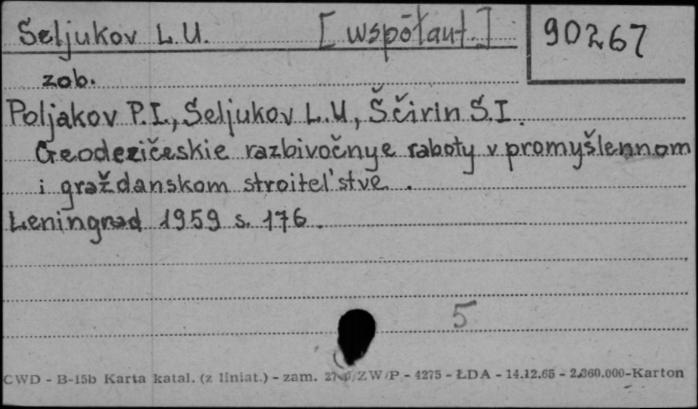 Seljukov L.U. [współaut.] 90267
zob.
Poljakov P.I., Seljukov L.U, Ščirin S.I.
Geodezičeskie razbivočnye raboty v promyšlennom
i graždanskom stroitel'stve.
Leningrad 1959 s. 176.
5
CWD - B-15b Karta katal. (z liniat.) - zam. ZW/P - 4275 - ŁDA - 14.12.65 - 2.360.000-Karton